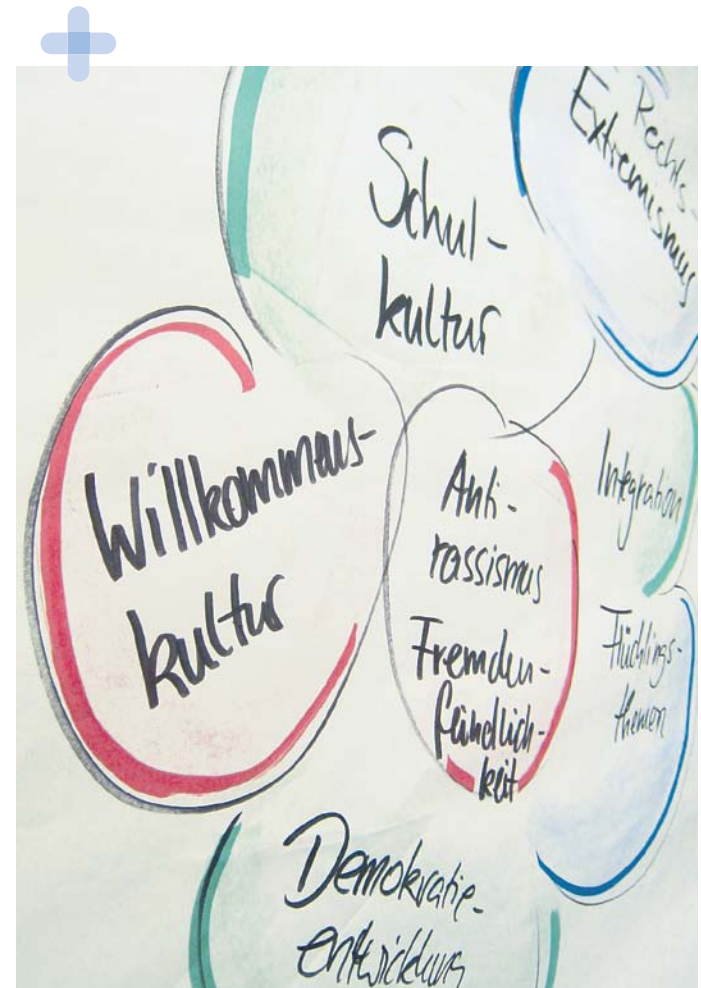 Rechts-
Extremismus
Schul-
kultur
Willkommens-
kultur
Anti-
rassismus
Fremden-
feindlich-
keit
Integration
Flüchtlings-
themen
Demokratie-
entwicklung